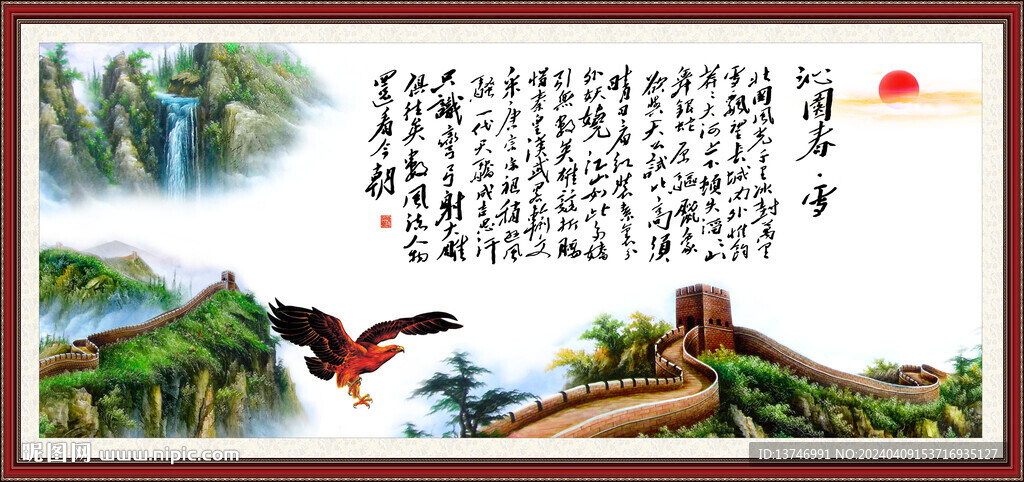 沁園春·雪
北國風光千里冰封萬里
雪飄望長城內外惟餘
莽莽大河上下頓失滔滔山
舞銀蛇原驅臘象
欲與天公試比高須
晴日看紅裝素裹分
外妖嬈江山如此多嬌
引無數英雄競折腰
惜秦皇漢武略輸文
采唐宗宋祖稍遜風
騷一代天驕成吉思汗
只識彎弓射大雕
俱往矣數風流人物
還看今朝
昵图网 www.nipic.com
ID:13746991 NO:20240409153716935127